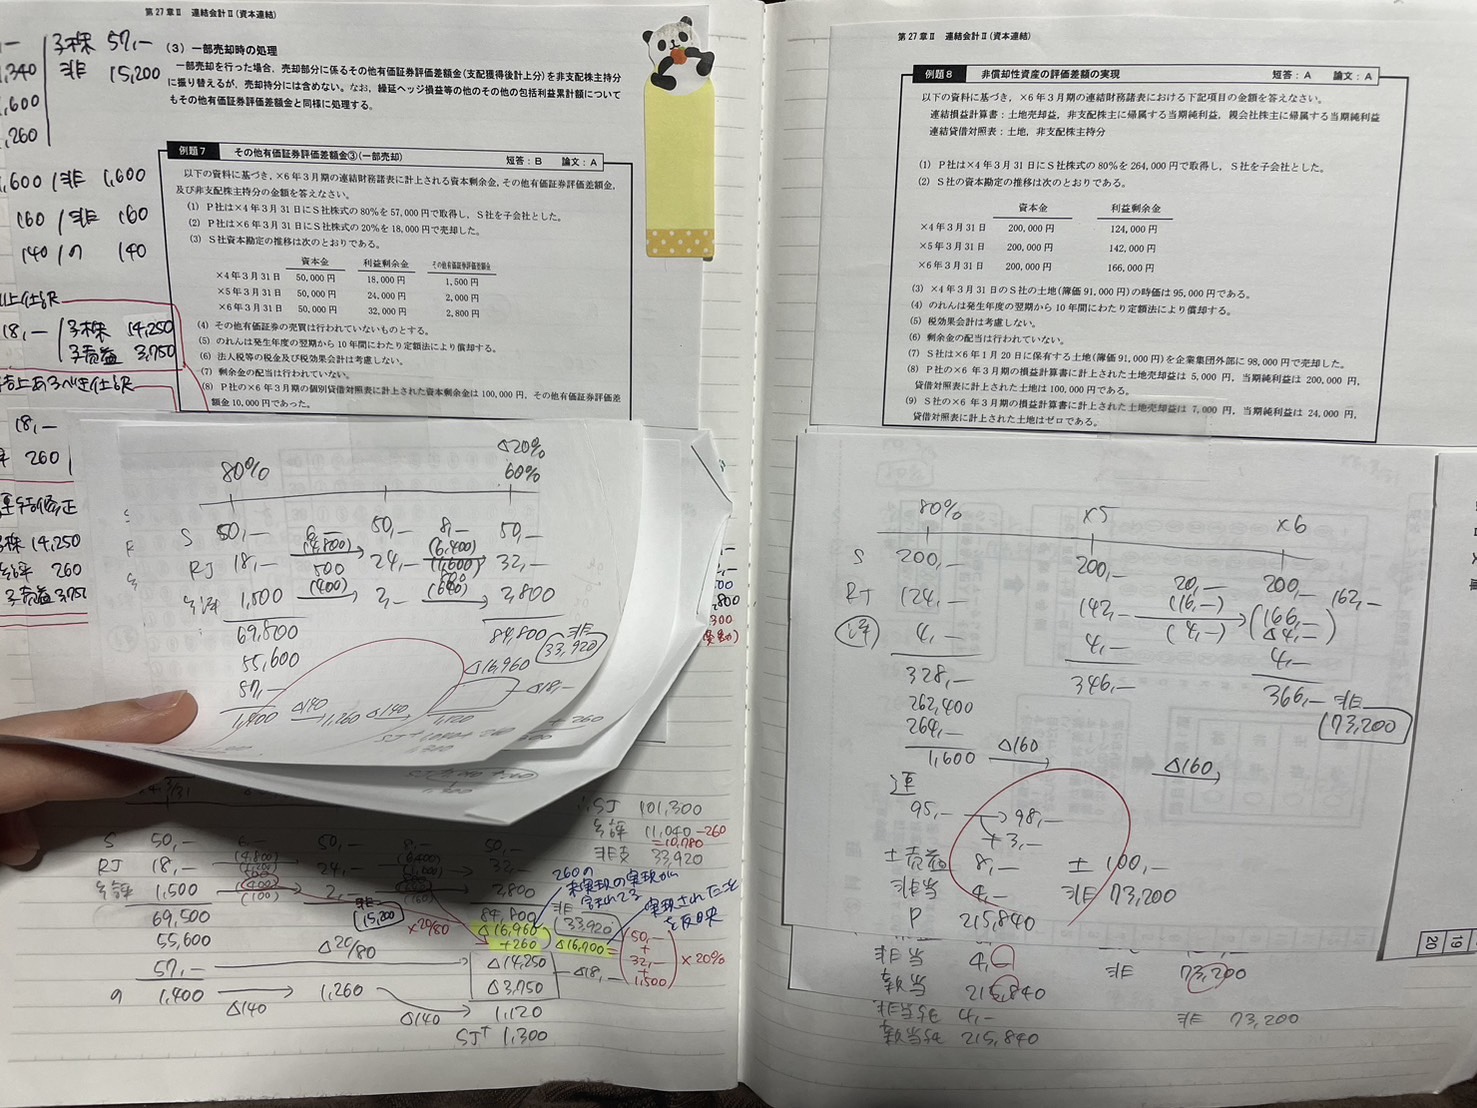 第27章Ⅱ 連結会計Ⅱ(資本連結)
(3) 一部売却時の処理
一部売却を行った場合,売却部分に係るその他有価証券評価差額金(支配獲得後計上分)を非支配株主持分
に振り替えるが,売却持分には含めない。なお,繰延ヘッジ損益等の他のその他の包括利益累計額について
もその他有価証券評価差額金と同様に処理する。
例題7 その他有価証券評価差額金③(一部売却) 短答:B 論文:A
以下の資料に基づき,×6年3月期の連結財務諸表に計上される資本剰余金,その他有価証券評価差額金,
及び非支配株主持分の金額を答えなさい。
(1) P社は×4年3月31日にS社株式の80%を57,000円で取得し,S社を子会社とした。
(2) P社は×6年3月31日にS社株式の20%を18,000円で売却した。
(3) S社資本勘定の推移は次のとおりである。
資本金 利益剰余金 その他有価証券評価差額金
×4年3月31日 50,000円 18,000円 1,500円
×5年3月31日 50,000円 24,000円 2,000円
×6年3月31日 50,000円 32,000円 2,800円
(4) その他有価証券の売買は行われていないものとする。
(5) のれんは発生年度の翌期から10年間にわたり定額法により償却する。
(6) 法人税等の税金及び税効果会計は考慮しない。
(7) 剰余金の配当は行われていない。
(8) P社の×6年3月期の個別貸借対照表に計上された資本剰余金は100,000円,その他有価証券評価差
額金10,000円であった。
子株 57,-
1,340 非 15,200
,600
,260
1,600 / 非 1,600
160 / 非 160
140 / の 140
18,- / 子株 14,250
子売益 3,750
18,-
260
子株 14,250
260
子売益 3,750
△20%
80% 60%
S 50,- 6,- 50,- 8,- 50,-
RJ 18,- (4,800) 24,- (6,400) (1,600) 32,-
1,500 500 (400) 2,- 800 (640) 2,800
69,800 84,800 非 33,920
55,600 △16,960
57,- △18,-
1,400 △140 1,260 △140 1,120 +260
SJ 101,300
11,040 -260
=10,780
非支 33,920
S 50,- 6,- 50,- 8,- 50,-
RJ 18,- (4,800) 24,- (6,400) 32,-
1,500 (400) (100) 2,- 2,800
69,500 非 15,200 ×20/80 84,800 非 33,920
55,600 △20/80 △16,960
+260 △16,700=
57,- △14,250 △18,-
△3,750
の 1,400 △140 1,260 △140 1,120
SJ↑ 1,300
260の
未実現の実現から
含まれてる
実現されたことを反映
(50,- + 32,- + 1,500) ×20%
第27章Ⅱ 連結会計Ⅱ(資本連結)
例題8 非償却性資産の評価差額の実現 短答:A 論文:A
以下の資料に基づき,×6年3月期の連結財務諸表における下記項目の金額を答えなさい。
連結損益計算書:土地売却益,非支配株主に帰属する当期純利益,親会社株主に帰属する当期純利益
連結貸借対照表:土地,非支配株主持分
(1) P社は×4年3月31日にS社株式の80%を264,000円で取得し,S社を子会社とした。
(2) S社の資本勘定の推移は次のとおりである。
資本金 利益剰余金
×4年3月31日 200,000円 124,000円
×5年3月31日 200,000円 142,000円
×6年3月31日 200,000円 166,000円
(3) ×4年3月31日のS社の土地(簿価91,000円)の時価は95,000円である。
(4) のれんは発生年度の翌期から10年間にわたり定額法により償却する。
(5) 税効果会計は考慮しない。
(6) 剰余金の配当は行われていない。
(7) S社は×6年1月20日に保有する土地(簿価91,000円)を企業集団外部に98,000円で売却した。
(8) P社の×6年3月期の損益計算書に計上された土地売却益は5,000円,当期純利益は200,000円,
貸借対照表に計上された土地は100,000円である。
(9) S社の×6年3月期の損益計算書に計上された土地売却益は7,000円,当期純利益は24,000円,
貸借対照表に計上された土地はゼロである。
80% ×5 ×6
S 200,- 200,- 20,- 200,- 162,-
RJ 124,- 142,- (16,-) (166,-
評 4,- 4,- (4,-) △4,-)
4,-
328,- 346,- 366,- 非
262,400 73,200
264,-
1,600 △160 △160
連
95,- → 98,-
+3,-
土売益 8,- 土 100,-
非当 4,- 非 73,200
P 215,840
非当 4,- 非 73,200
株当 215,840
4,- 非 73,200
215,840
20 19